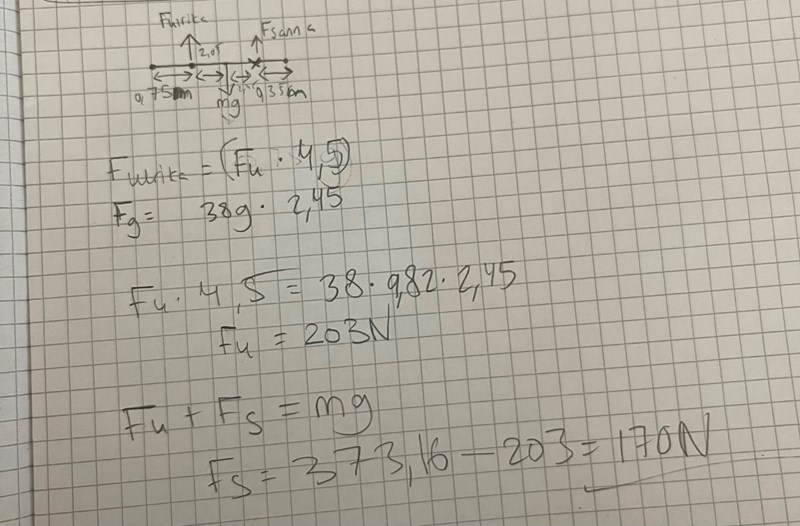 Fulrika
Fsanna
2,05
0,75m
mg
0,35m
Fulrika = (Fu · 4,5)
Fg = 38g · 2,45
Fu · 4,5 = 38 · 9,82 · 2,45
Fu = 203N
Fu + Fs = mg
Fs = 373,16 - 203 = 170N